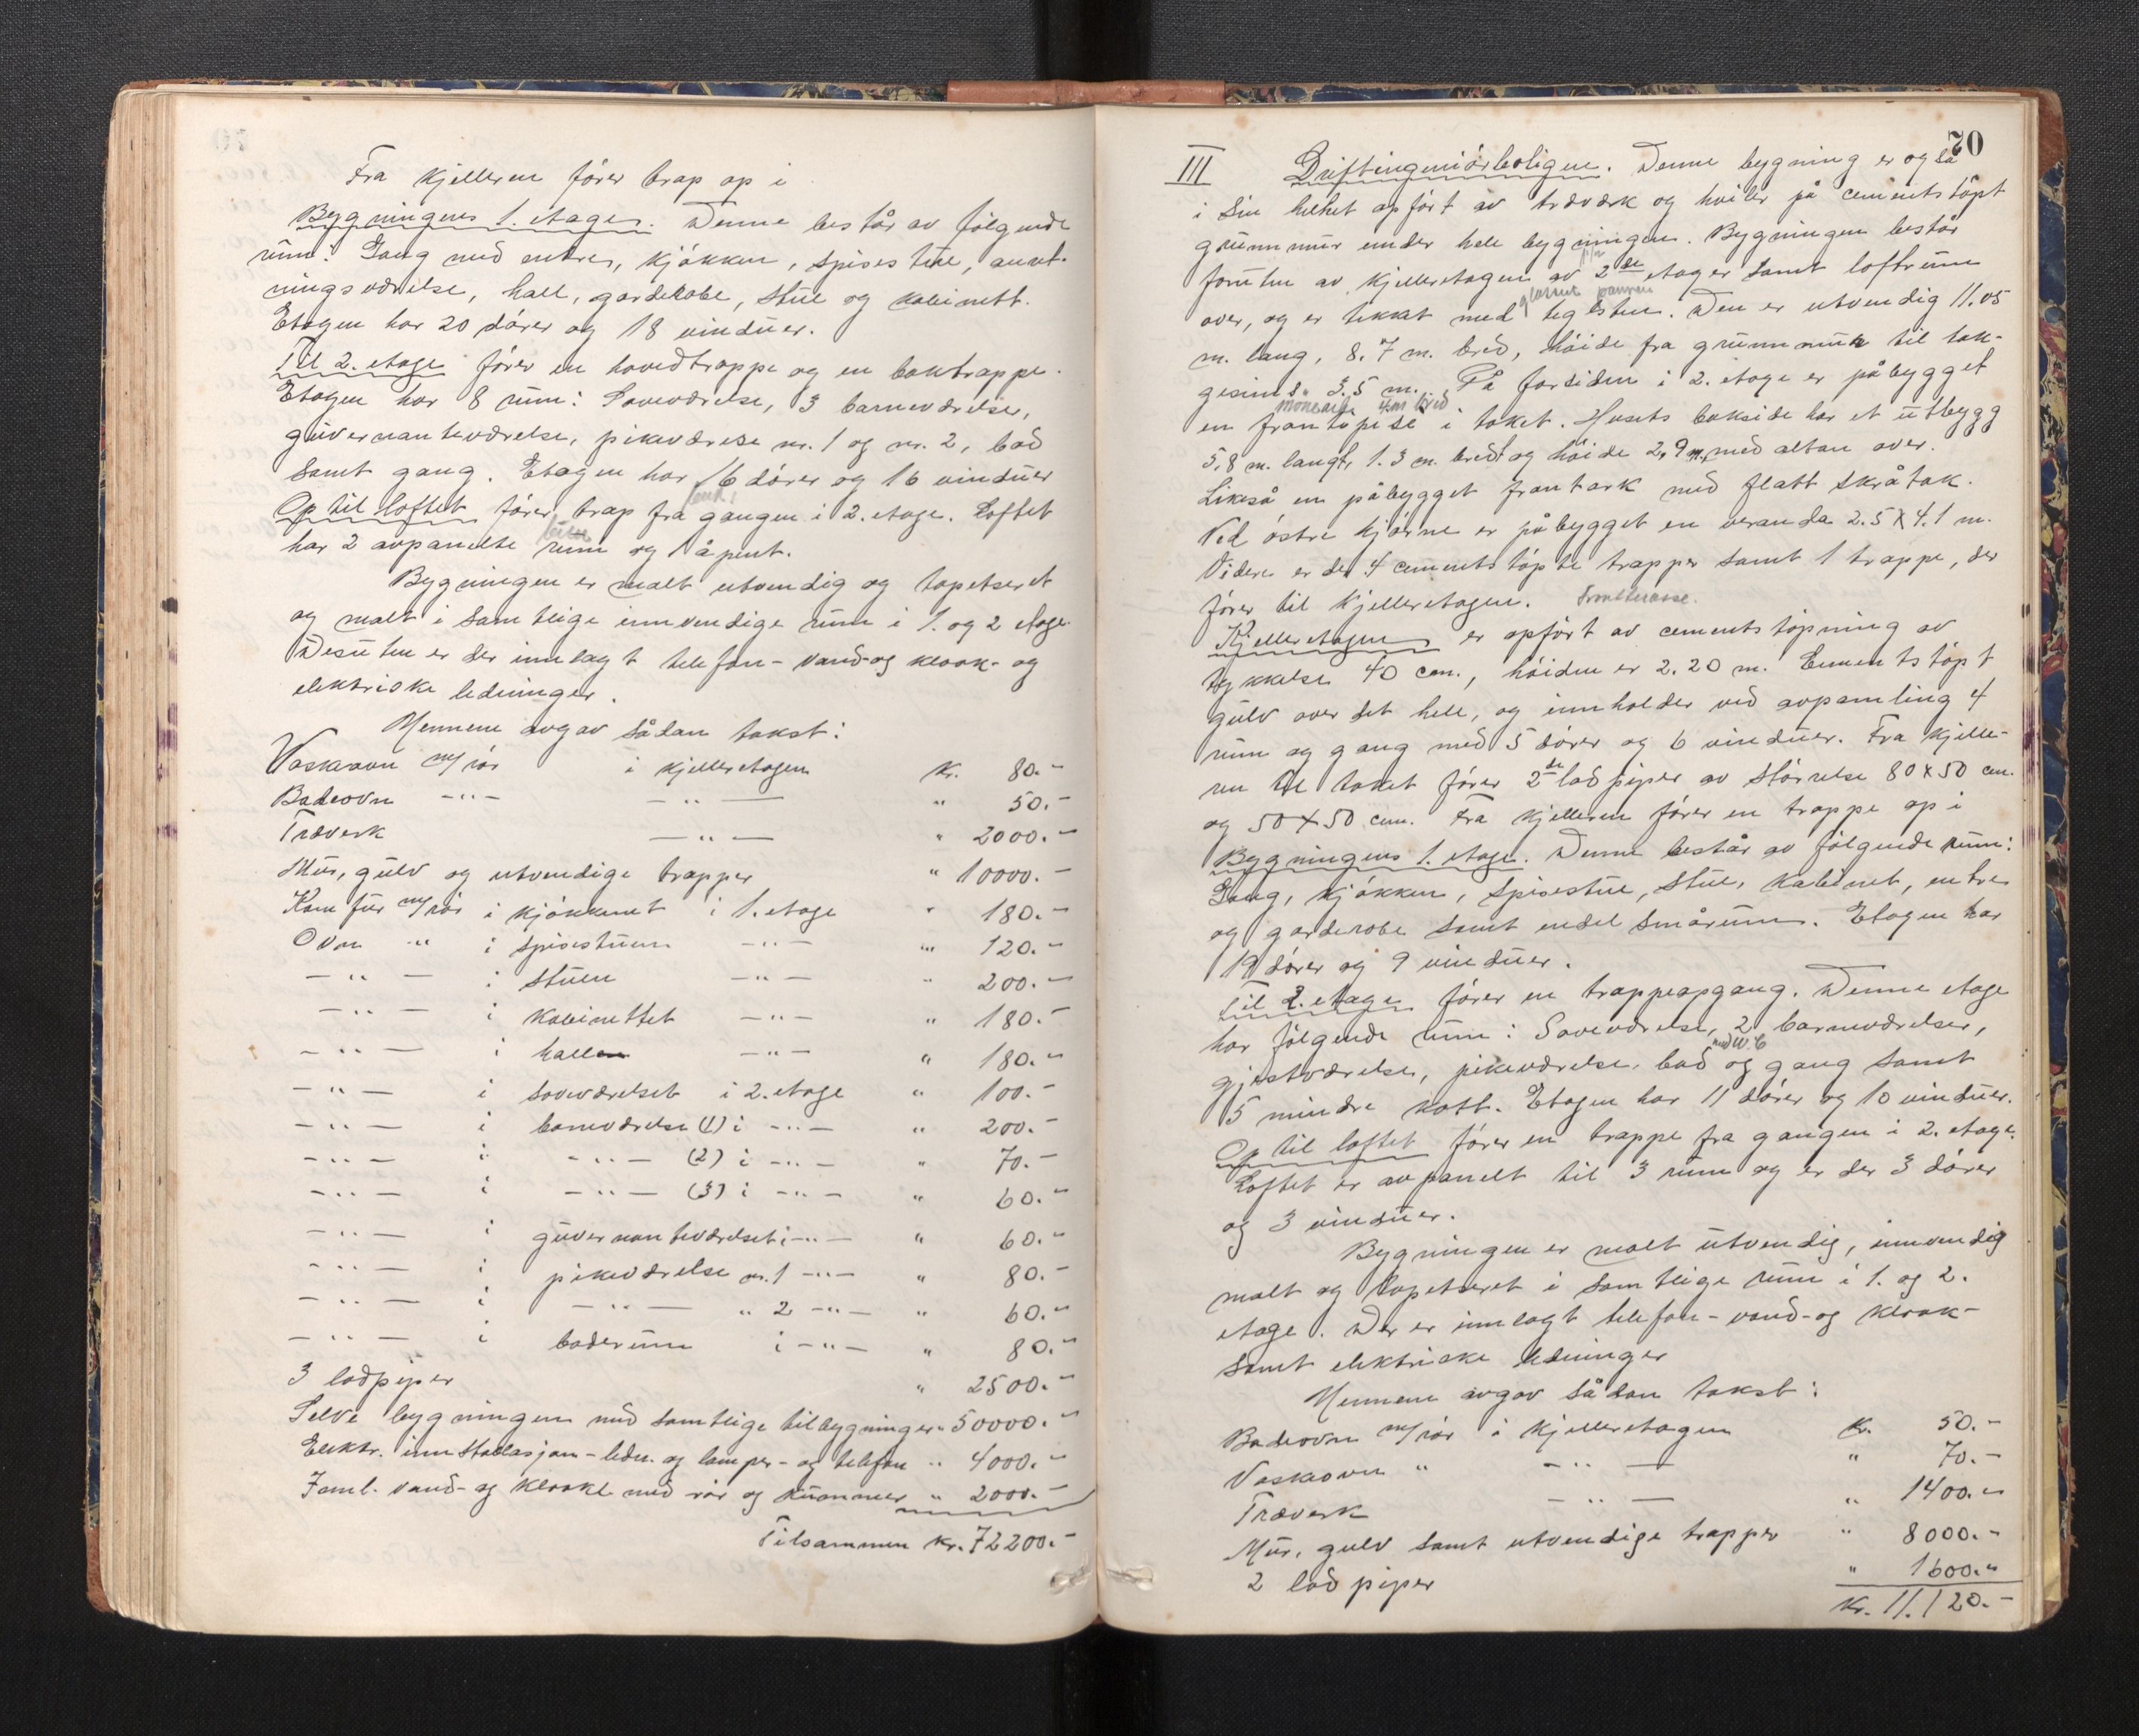 Fra kjelleren fører trap op i
Bygningens 1. etage. Denne består av følgende
rum: Gang med entre, kjøkken, spisestue, anret-
ningsværelse, hall, garderobe, stue og kabinett.
Etagen har 20 dører og 18 vinduer.
Til 2. etage fører en hovedtrappe og en baktrappe.
Etagen har 8 rum: Soveværelse, 3 barneværelser,
guvernanteværelse, pikeværelse nr. 1 og nr. 2, bad
samt gang. Etagen har 16 dører og 16 vinduer
Op til loftet fører trap fra gangen i 2. etage. Loftet
har 2 avpanelte rum og 1 åpent.
Bygningen er malt utvendig og tapetseret
og malt i samtlige innvendige rum i 1. og 2 etage.
Desuten er der innlagt telefon- vand- og kloak- og
elektriske ledninger.
Mennene avgav sådan takst:
Vaskeovn m/rør i kjelleretagen kr. 80.-
Badeovn -"- -"- " 50.-
Træverk -"- " 2000.-
Mur, gulv og utvendige trapper " 10000.-
Komfur m/rør i kjøkkenet i 1. etage " 180.-
Ovn " i spisestuen -"- " 120.-
-"- i stuen -"- " 200.-
-"- i kabinettet -"- " 180.-
-"- i hallen -"- " 180.-
-"- i soveværelset i 2. etage " 100.-
-"- i barneværelse (1) i -"- " 200.-
-"- i -"- (2) i -"- " 70.-
-"- i -"- (3) i -"- " 60.-
-"- i guvernanteværelset i -"- " 60.-
-"- i pikeværelse nr. 1 -"- " 80.-
-"- i -"- " 2 -"- " 60.-
-"- i baderum i -"- " 80.-
3 ladpiper " 2500.-
Selve bygningen med samtlige tilbygninger " 50000.-
Elektr. innstallasjon - ledn. og lamper - og telefon " 4000.-
Saml. vand- og kloakl. med rør og kummer " 2000.-
Tilsammen kr. 72200.-
70
III Driftingeniørboligen. Denne bygning er også
i sin helhet opført av træværk og hviler på cementstøpt
grunnmur under hele bygningen. Bygningen består
foruten av kjelleretagen av 2de etager samt loftrum
glassert pannen
over, og er tekkat med teglsten. Den er utvendig 11.05
m. lang, 8.7 m. bred, høide fra grunnmur til tak-
gesims 3.5 m. På forsiden i 2. etage er påbygget
mansard 4m bred
en frontspise i taket. Husets bakside har et utbygg
5,8 m. langt, 1.3 m. bredt og høide 2,9 m, med altan over.
Likeså en påbygget frontark med flatt skråtak.
Ved østre hjørne er påbygget en veranda 2.5 X 4.1 m.
Videre er der 4 cementstøpte trapper samt 1 trappe, der
fører til kjelleretagen.
Kjelleretagen er opført av cementstøpning av
tykkelse 40 cm., høiden er 2.20 m. Cementstøpt
gulv over det hele, og innholder ved avpanling 4
rum og gang med 5 dører og 6 vinduer. Fra kjelle-
ren til taket fører 2de ladpiper av størrelse 80 x 50 cm.
og 50 X 50 cm. Fra kjelleren fører en trappe op i
Bygningens 1. etage. Denne består av følgende rum:
Gang, kjøkken, spisestue, stue, kabinet, entre
og garderobe samt endel smårum. Etagen har
19 dører og 9 vinduer.
Til 2. etage fører en trappeopgang. Denne etage
har følgende rum: Soveværelse, 2 barneværelser,
med W.C
gjesteværelse, pikeværelse, bad og gang samt
5 mindre kott. Etagen har 11 dører og 10 vinduer.
Op til loftet fører en trappe fra gangen i 2. etage.
Loftet er avpanelt til 3 rum og er der 3 dører
og 3 vinduer.
Bygningen er malt utvendig, innvendig
malt og tapetseret i samtlige rum i 1. og 2.
etage. Der er innlagt telefon- vand- og kloak-
samt elektriske ledninger
Mennene avgav sådan takst:
Badeovn m/rør i kjelleretagen kr. 50.-
Vaskeovn " -"- " 70.-
Træverk -"- " 1400.-
Mur, gulv samt utvendige trapper " 8000.-
2 ladpiper " 1600.-
kr. 11.120.-